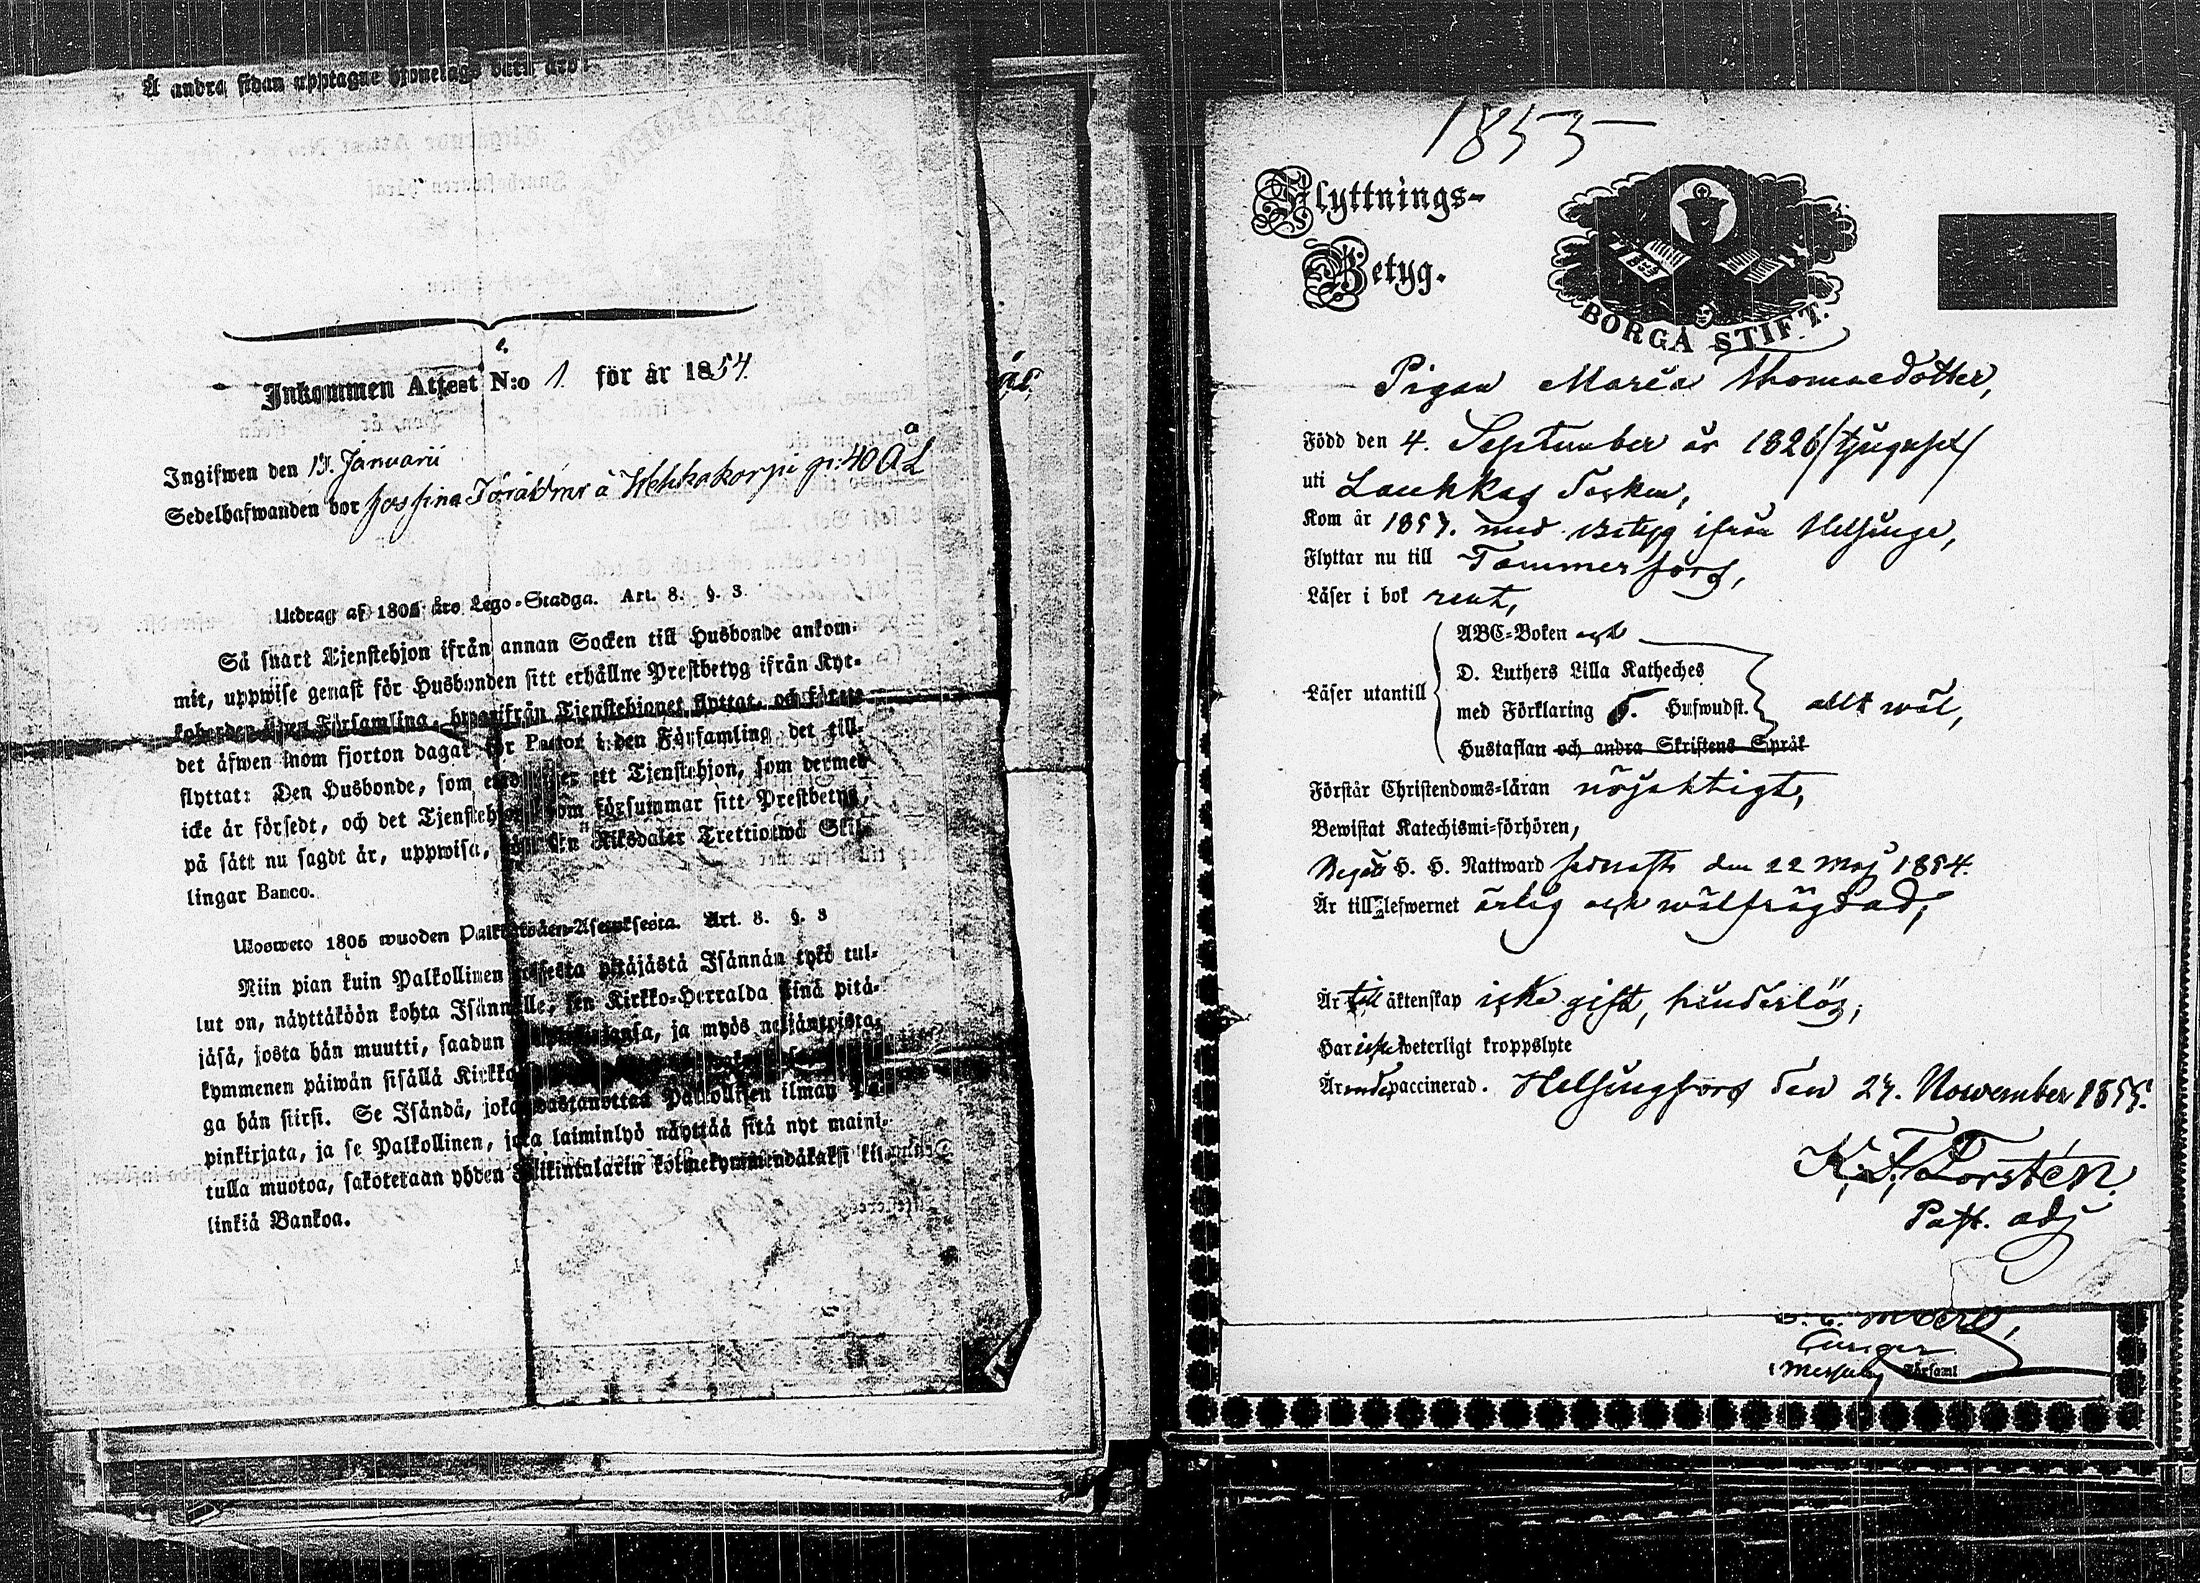 Å andra sidan upptagne hjonelags barn äro:
Inkommen Attest N:o 1. för år 1854.
Ingifwen den 13. Januarii
Sedelhafwanden bor
Utdrag af 1805 års Lego-Stadga. Art. 8. §. 3
Så snart Tjenstehjon ifrån annan Socken till Husbonde ankom-
mit, uppwise genast för Husbonden sitt erhållne Prestbetyg ifrån Kyr-
koherden i den Församling, hwarifrån Tjenstehjonet flyttat, och förete
det äfwen inom fjorton dagar för Pastor i den Församling det till-
flyttat: Den Husbonde, som emottager ett Tjenstehjon, som dermed
icke är försedt, och det Tjenstehjon som försummar sitt Prestbetyg,
på sätt nu sagdt är, uppwisa, böte en Riksdaler Trettiotwå Skil-
lingar Banco.
Ulosweto 1805 wuoden Palkollisten-Asetuksesta. Art. 8. §. 3
Niin pian kuin Palkollinen toisesta pitäjästä Isännän tykö tul-
lut on, näyttäköön kohta Isännälle, sen Kirkko-Herralda sinä pitä-
jäsä, josta hän muutti, saadun ja myös neljäntoista
kymmenen päiwän sisällä
ga hän siirsi. Se Isändä, joka wastanottaa Palkollisen ilman
pinkirjata, ja se Palkollinen, joka laiminlyö näyttää sitä nyt maini-
tulla muotoa, sakoteraan yhden Rikintalarin kolmekymmendäkaksi kil-
linkiä Bankoa.
1855
Flyttnings-
Betyg.
BORGÅ STIFT.
Pigan Maria Thomasdotter,
Född den 4. September år 1826 (tjugusex)
uti Laukkas Socken,
Kom år 1851. med Betyg ifrån Helsinge,
Flyttar nu till Tammerfors,
Läser i bok rent,
ABC-Boken och
D. Luthers Lilla Katheches
Läser utantill
med Förklaring 5. Hufwudst. allt wäl,
Hustaflan och andra Skriftens Språk
Förstår Christendoms-läran nöjaktigt,
Bewistat Katechismi-förhören,
Begått H. H. Nattward sednast den 22 Maj 1854.
Är till lefwernet ärlig och wälfrägdad,
Är till äktenskap icke gift, hinderlös,
Har icke weterligt kroppslyte
Är vaccinerad. Helsingfors den 27. November 1855.
K. F. Forstén.
Past. adj
Församl